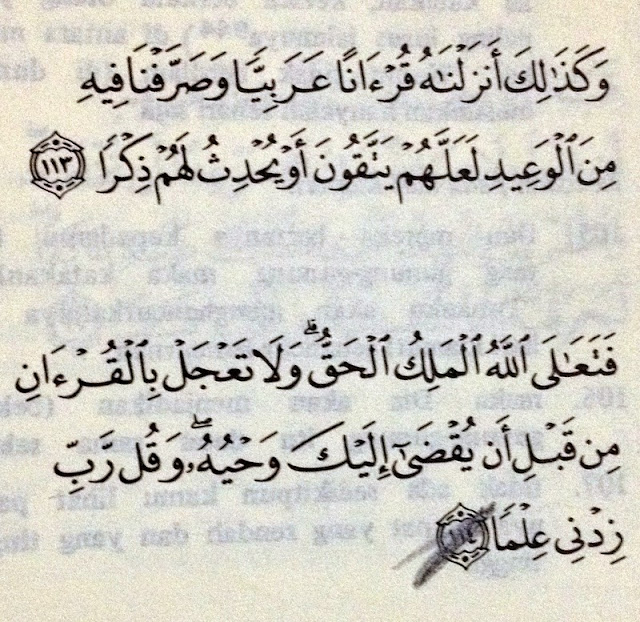 وَكَذَٰلِكَ أَنزَلْنَٰهُ قُرْءَانًا عَرَبِيًّا وَصَرَّفْنَا فِيهِ
مِنَ ٱلْوَعِيدِ لَعَلَّهُمْ يَتَّقُونَ أَوْ يُحْدِثُ لَهُمْ ذِكْرًا ١١٣
فَتَعَٰلَى ٱللَّهُ ٱلْمَلِكُ ٱلْحَقُّ ۗ وَلَا تَعْجَلْ بِٱلْقُرْءَانِ
مِن قَبْلِ أَن يُقْضَىٰٓ إِلَيْكَ وَحْيُهُۥ ۖ وَقُل رَّبِّ
زِدْنِى عِلْمًا ١١٤